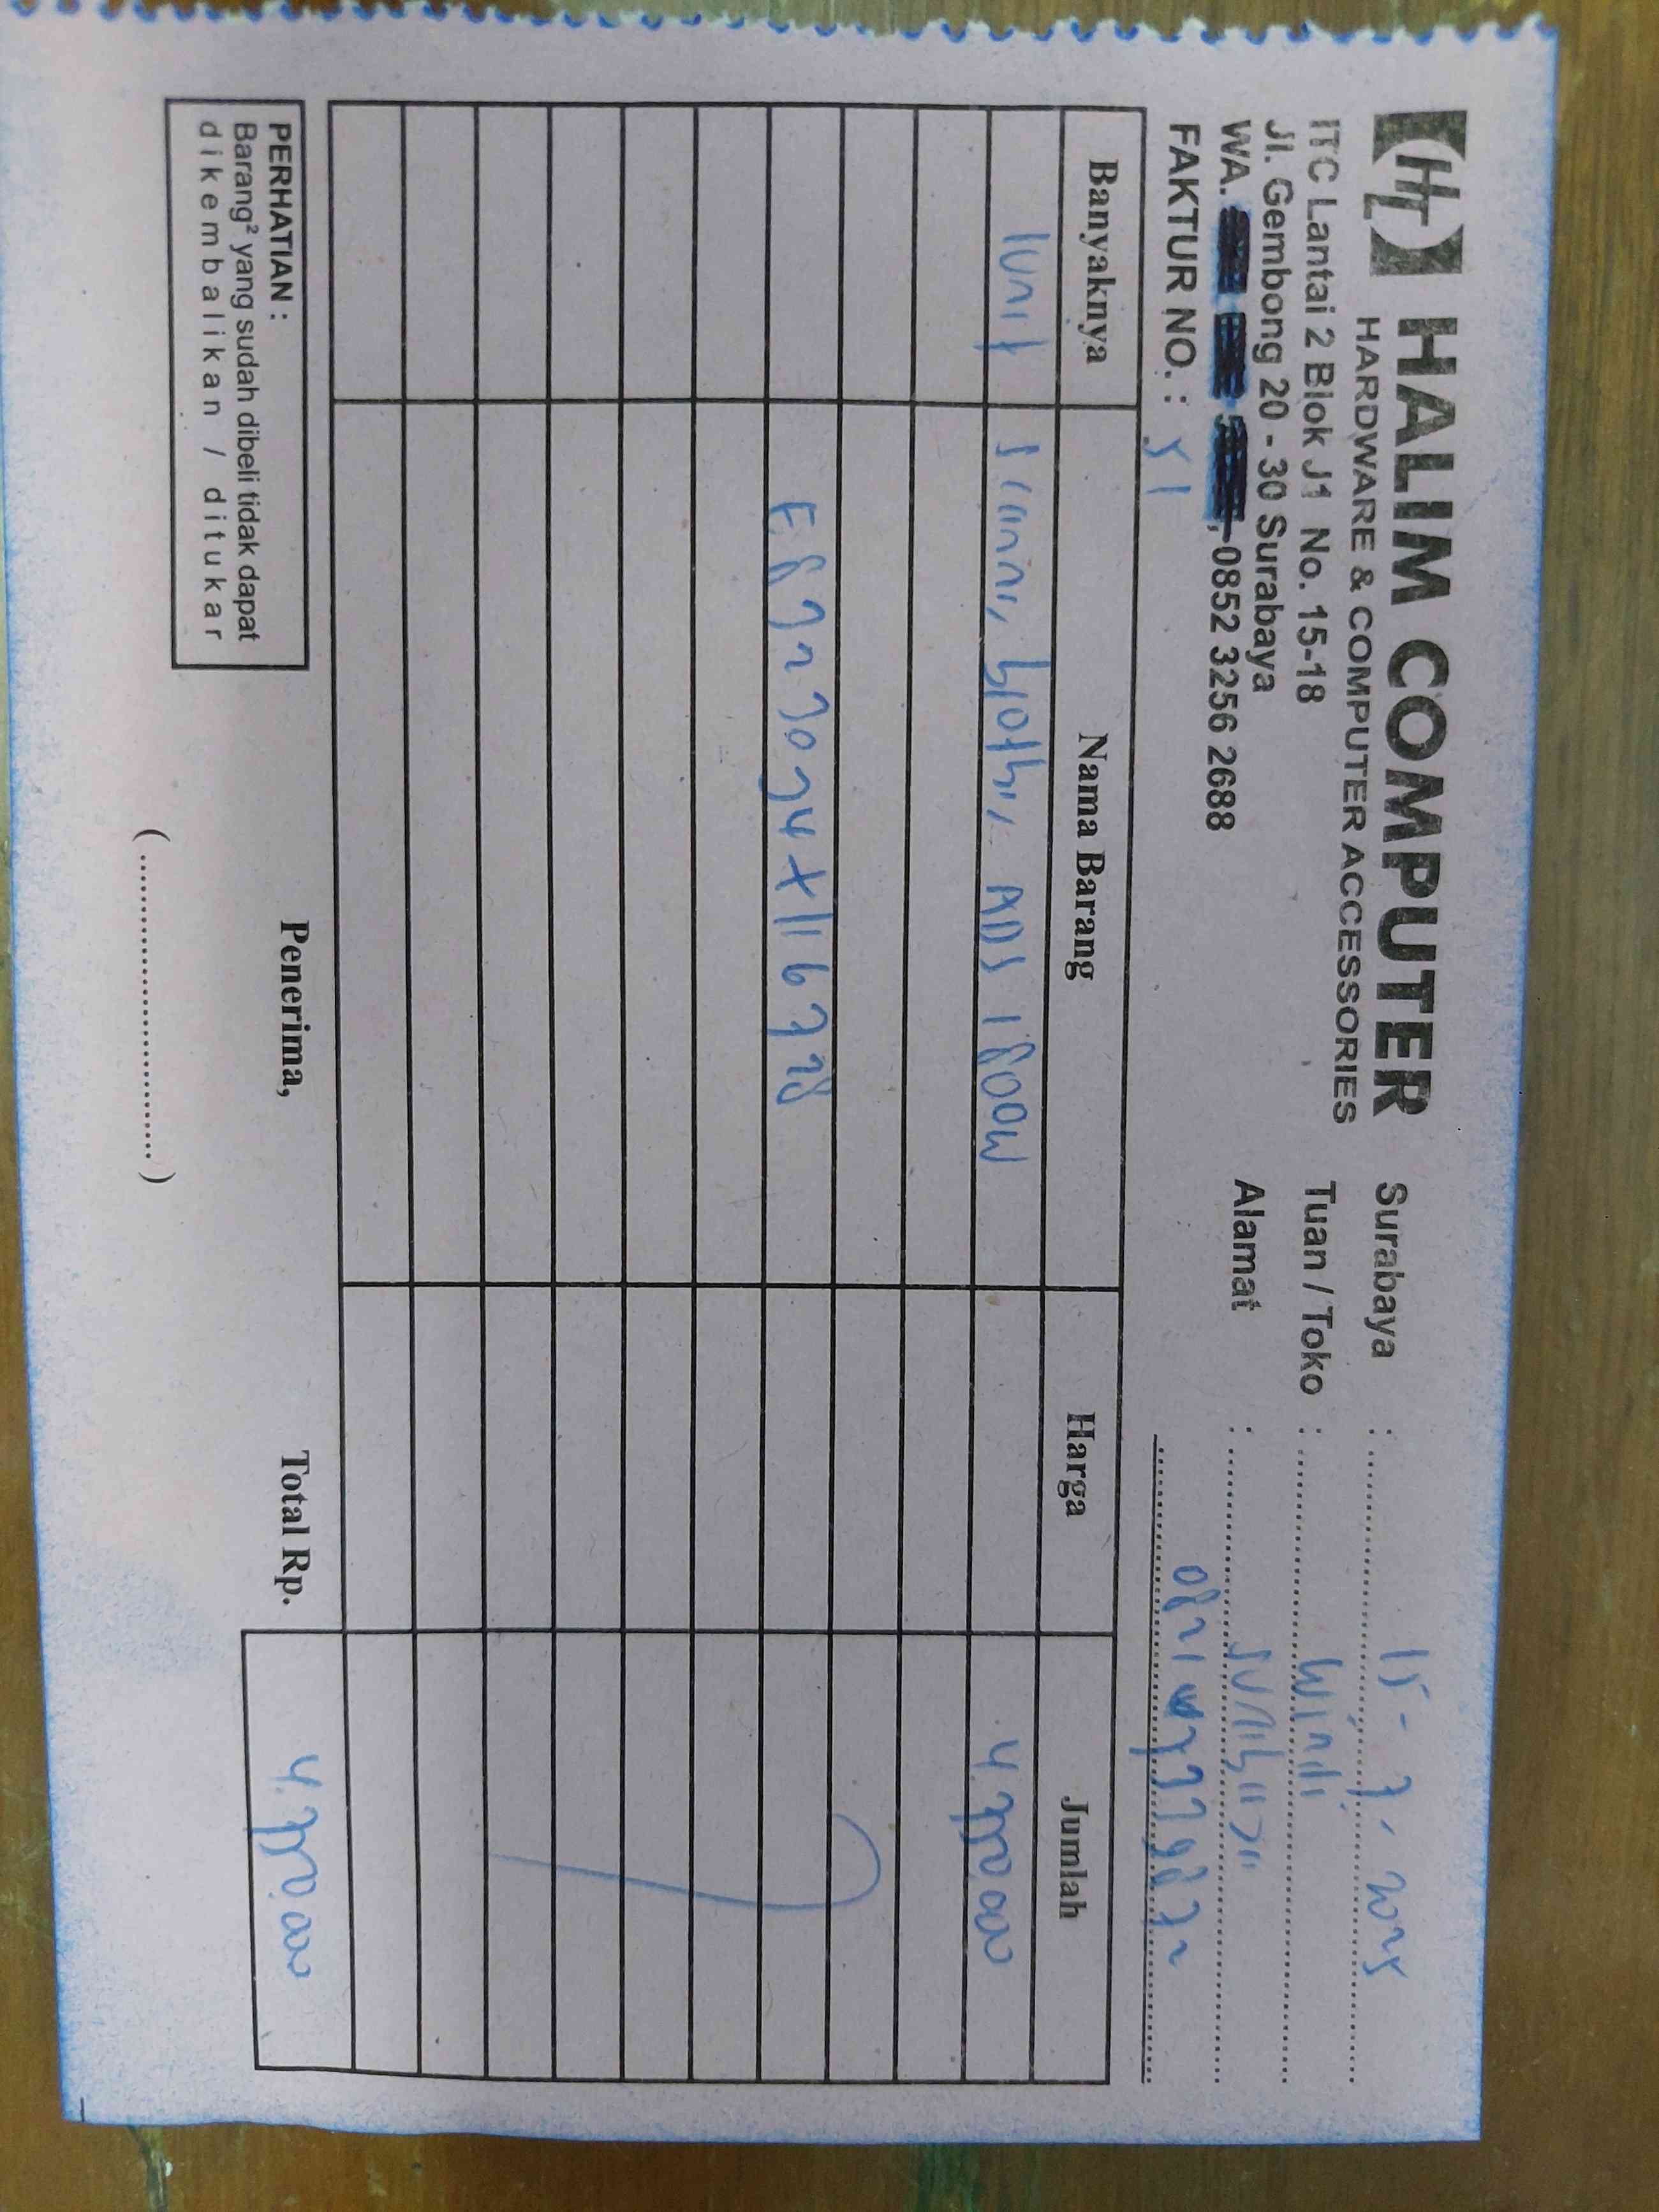 HALIM COMPUTER
HARDWARE & COMPUTER ACCESSORIES
ITC Lantai 2 Blok J1 No. 15-18
Jl. Gembong 20 - 30 Surabaya
WA. , 0852 3256 2688
FAKTUR NO. : 51
Surabaya : 15 - 7 - 2025
Tuan / Toko :
Alamat : Surabaya
Banyaknya Nama Barang Harga Jumlah
1 unit Scanner brother ADS 1800W 4.770.000
PERHATIAN :
Barang² yang sudah dibeli tidak dapat
dikembalikan / ditukar
Penerima,
(..............................)
Total Rp. 4.770.000